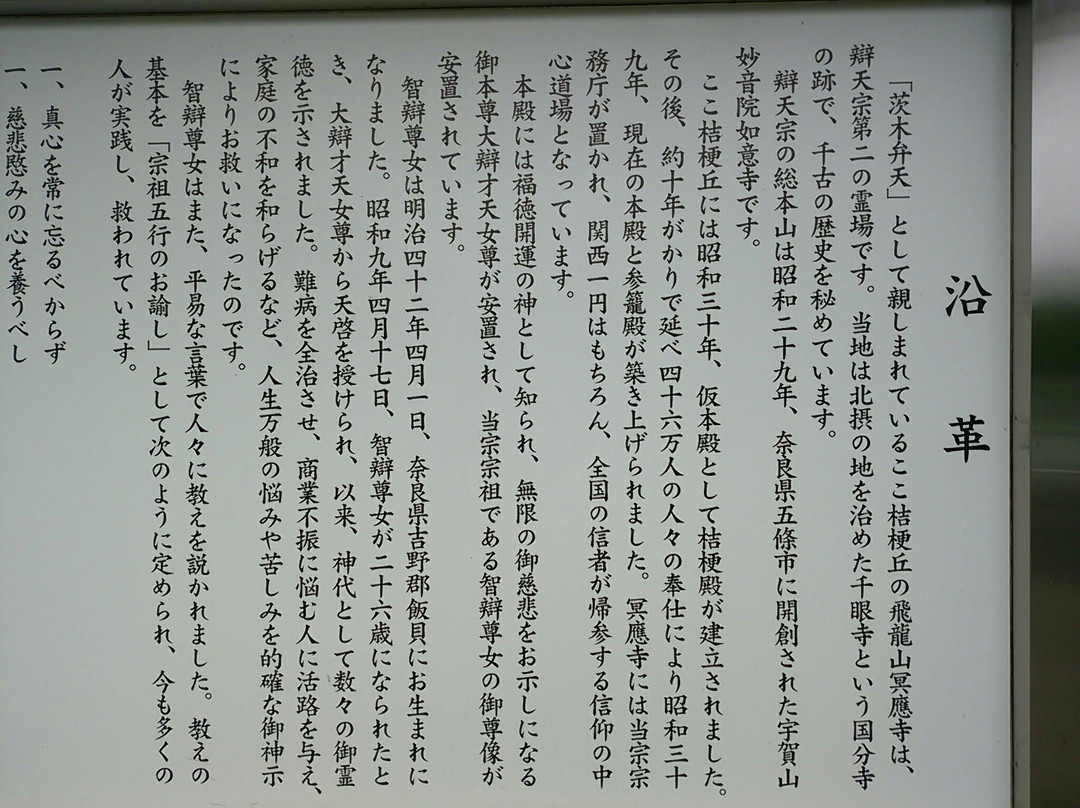 沿革
「茨木弁天」として親しまれているここ桔梗丘の飛龍山冥應寺は、
辯天宗第二の霊場です。当地は北摂の地を治めた千眼寺という国分寺
の跡で、千古の歴史を秘めています。
辯天宗の総本山は昭和二十九年、奈良県五條市に開創された宇賀山
妙音院如意寺です。
ここ桔梗丘には昭和三十年、仮本殿として桔梗殿が建立されました。
その後、約十年がかりで延べ四十六万人の人々の奉仕により昭和三十
九年、現在の本殿と参籠殿が築き上げられました。冥應寺には当宗宗
務庁が置かれ、関西一円はもちろん、全国の信者が帰参する信仰の中
心道場となっています。
本殿には福徳開運の神として知られ、無限の御慈悲をお示しになる
御本尊大辯才天女尊が安置され、当宗宗祖である智辯尊女の御尊像が
安置されています。
智辯尊女は明治四十二年四月一日、奈良県吉野郡飯貝にお生まれに
なりました。昭和九年四月十七日、智辯尊女が二十六歳になられたと
き、大辯才天女尊から天啓を授けられ、以来、神代として数々の御霊
徳を示されました。難病を全治させ、商業不振に悩む人に活路を与え、
家庭の不和を和らげるなど、人生万般の悩みや苦しみを的確な御神示
によりお救いになったのです。
智辯尊女はまた、平易な言葉で人々に教えを説かれました。教えの
基本を「宗祖五行のお諭し」として次のように定められ、今も多くの
人が実践し、救われています。
一、真心を常に忘るべからず
一、慈悲愍みの心を養うべし